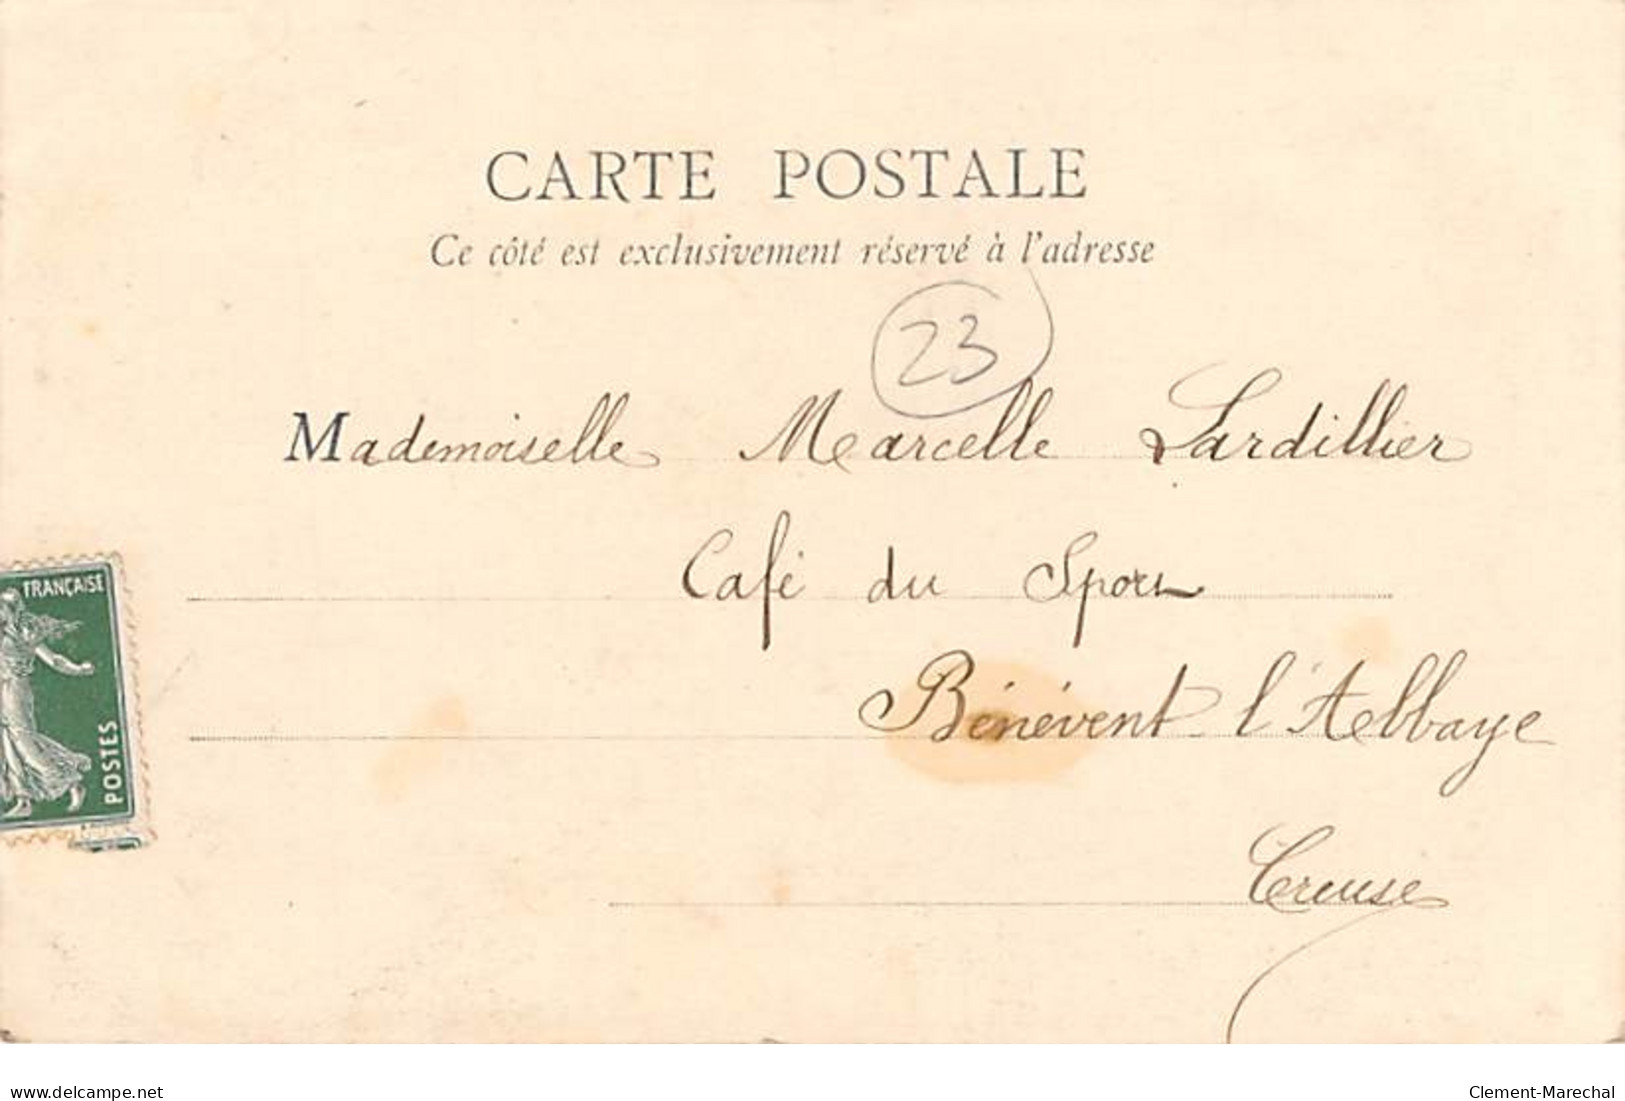 CARTE POSTALE
Ce côté est exclusivement réservé à l'adresse
23
Mademoiselle Marcelle Lardillier
Café du Sport
Bénévent l'Abbaye
Creuse
FRANÇAISE
POSTES
delcampe.net
Clement-Marechal